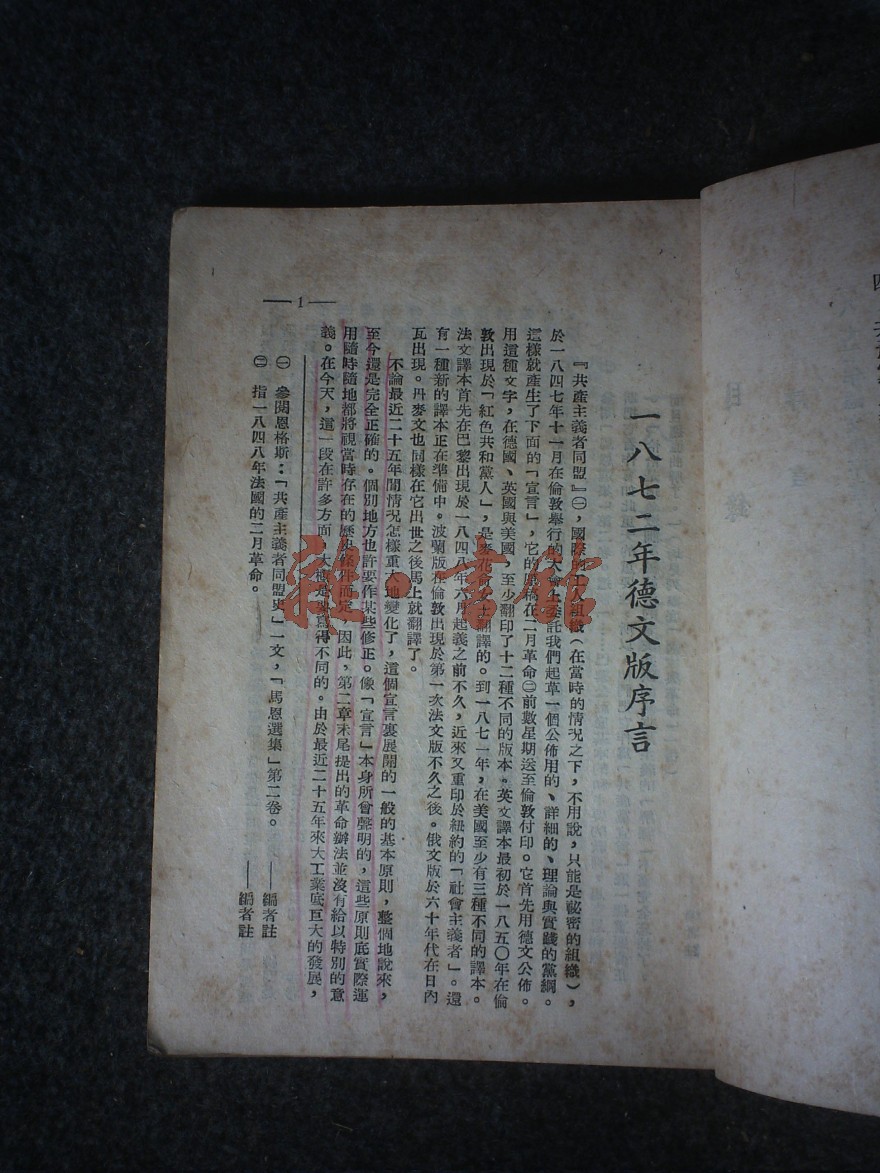 一八七二年德文版序言
『共產主義者同盟』㊀，國際的工人組織（在當時的情況之下，不用說，只能是祕密的組織），
於一八四七年十一月在倫敦舉行的大會上委託我們起草一個公佈用的、詳細的、理論與實踐的黨綱。
這樣就產生了下面的「宣言」，它的原稿在二月革命㊁前數星期送至倫敦付印。它首先用德文公佈。
用這種文字，在德國、英國與美國，至少翻印了十二種不同的版本。英文譯本最初於一八五〇年在倫
敦出現於「紅色共和黨人」，是麥花命女士翻譯的。到一八七一年，在美國至少有三種不同的譯本。
法文譯本首先在巴黎出現於一八四八年六月起義之前不久，近來又重印於紐約的「社會主義者」。還
有一種新的譯本正在準備中。波蘭版在倫敦出現於第一次法文版不久之後。俄文版於六十年代在日內
瓦出現。丹麥文也同樣在它出世之後馬上就翻譯了。
不論最近二十五年間情況怎樣重大地變化了，這個宣言裏展開的一般的基本原則，整個地說來，
至今還是完全正確的。個別地方也許要作某些修正。像「宣言」本身所曾聲明的，這些原則底實際運
用隨時隨地都將視當時存在的歷史條件而定，因此，第二章末尾提出的革命辦法並沒有給以特別的意
義。在今天，這一段在許多方面，大概是要寫得不同的。由於最近二十五年來大工業底巨大的發展，
㊀ 參閱恩格斯：「共產主義者同盟史」一文，「馬恩選集」第二卷。 ——編者註
㊁ 指一八四八年法國的二月革命。 ——編者註
— 1 —